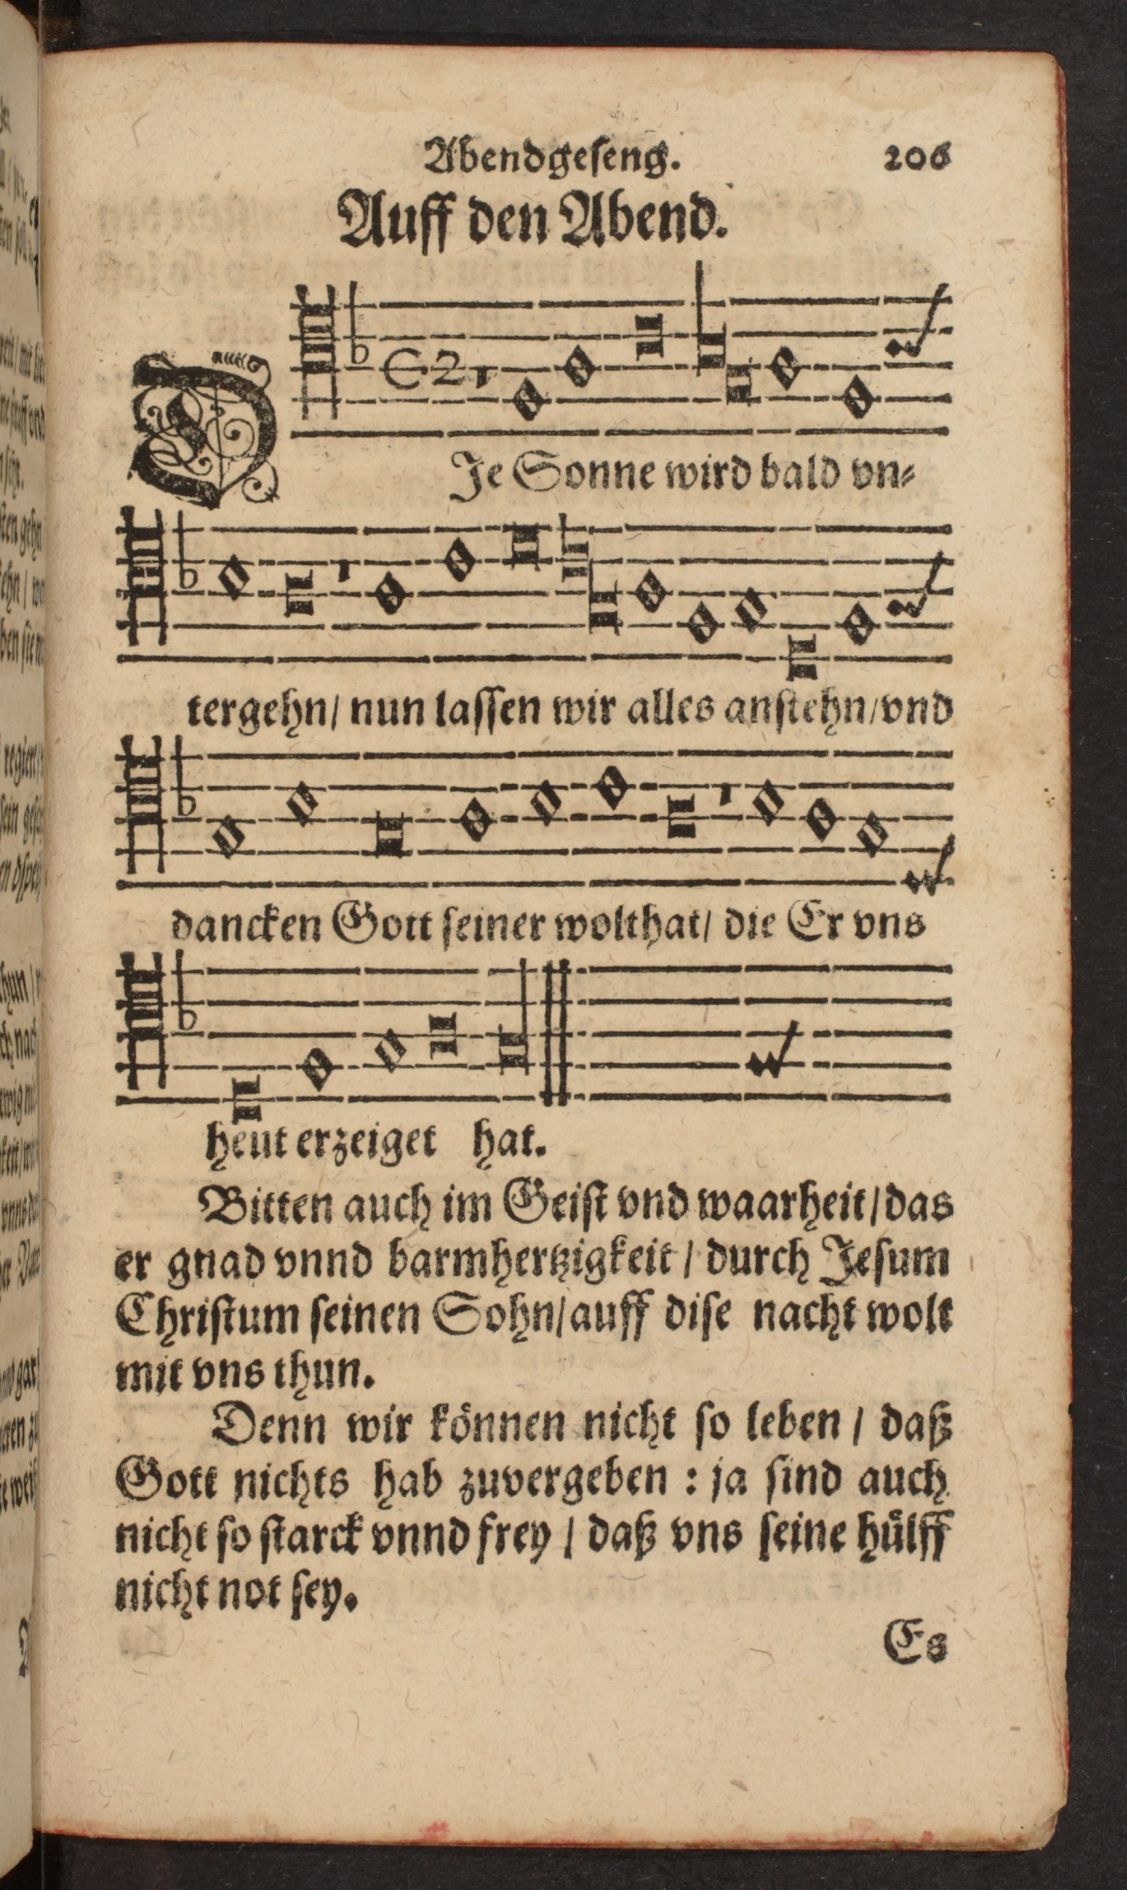 Abendgeseng. 206
Auff den Abend.
DJe Sonne wird bald vn-
tergehn/ nun lassen wir alles anstehn/vnd
dancken Gott seiner wolthat/ die Er vns
heut erzeiget hat.
Bitten auch im Geist vnd waarheit/das
er gnad vnnd barmhertzigkeit / durch Jesum
Christum seinen Sohn/auff dise nacht wolt
mit vns thun.
Denn wir können nicht so leben / daß
Gott nichts hab zuvergeben : ja sind auch
nicht so starck vnnd frey / daß vns seine hülff
nicht not sey.
Es